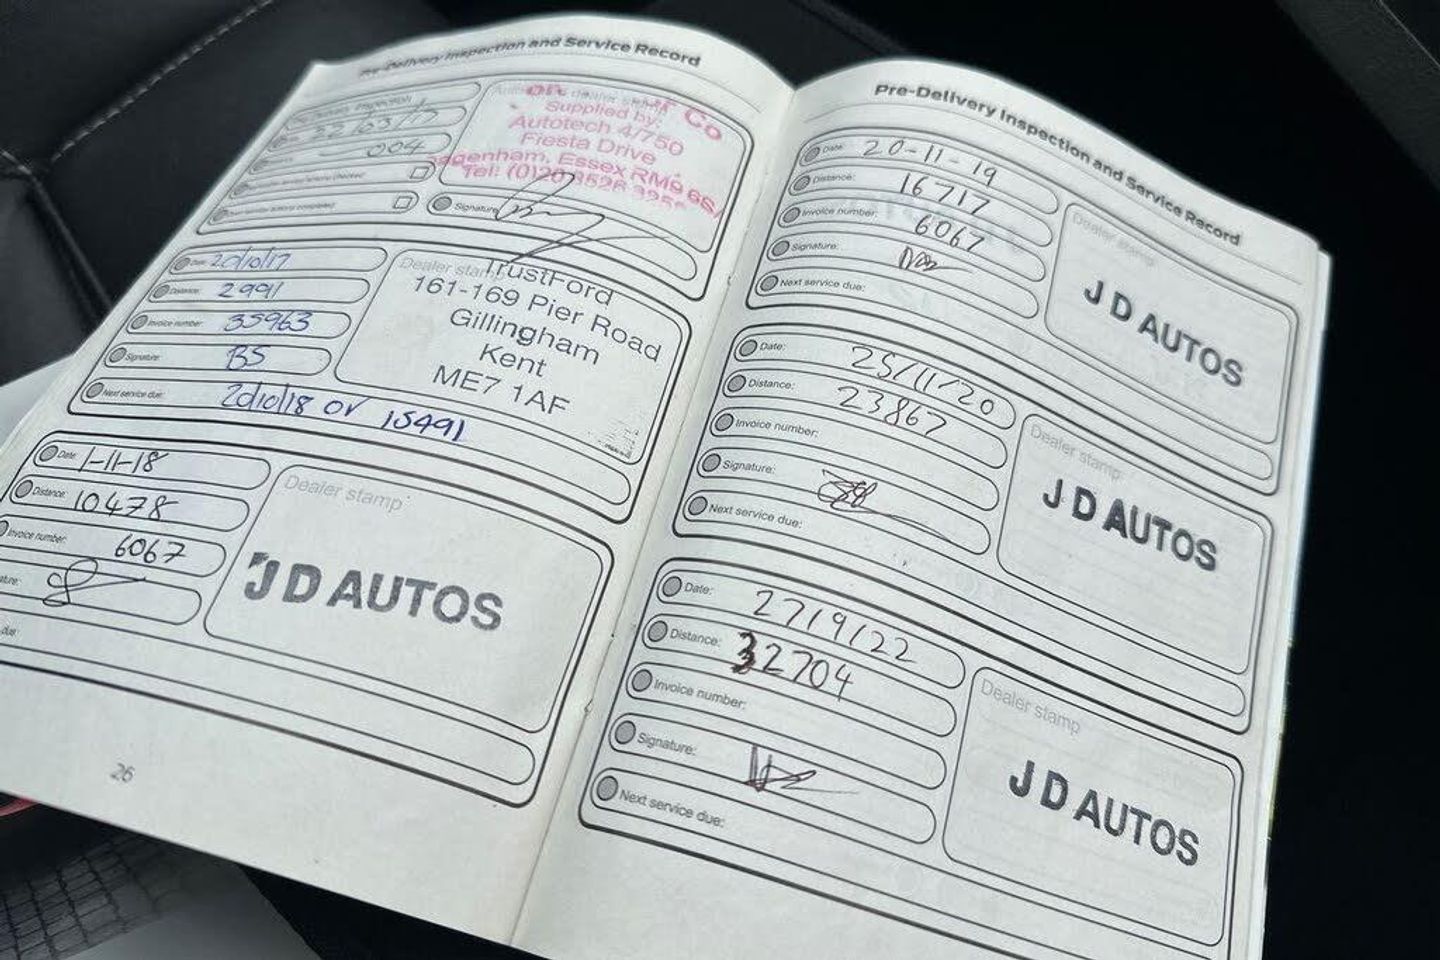 Pre-Delivery Inspection and Service Record
004
Supplied by:
Autotech 4/750
Fiesta Drive
Essex RM9 6S
Signature
Date: 20/10/17
Distance: 2991
Invoice number: 35963
Signature: BS
Next service due: 20/10/18 or 15491
Dealer stamp
TrustFord
161-169 Pier Road
Gillingham
Kent
ME7 1AF
Date: 1-11-18
Distance: 10478
Invoice number: 6067
Dealer stamp:
J D AUTOS
26
Pre-Delivery Inspection and Service Record
Date: 20-11-19
Distance: 16717
Invoice number: 6067
Signature:
Next service due:
Dealer stamp
J D AUTOS
Date: 25/11/20
Distance: 23867
Invoice number:
Signature:
Next service due:
Dealer stamp:
J D AUTOS
Date: 27/9/22
Distance: 32704
Invoice number:
Signature:
Next service due:
Dealer stamp
J D AUTOS